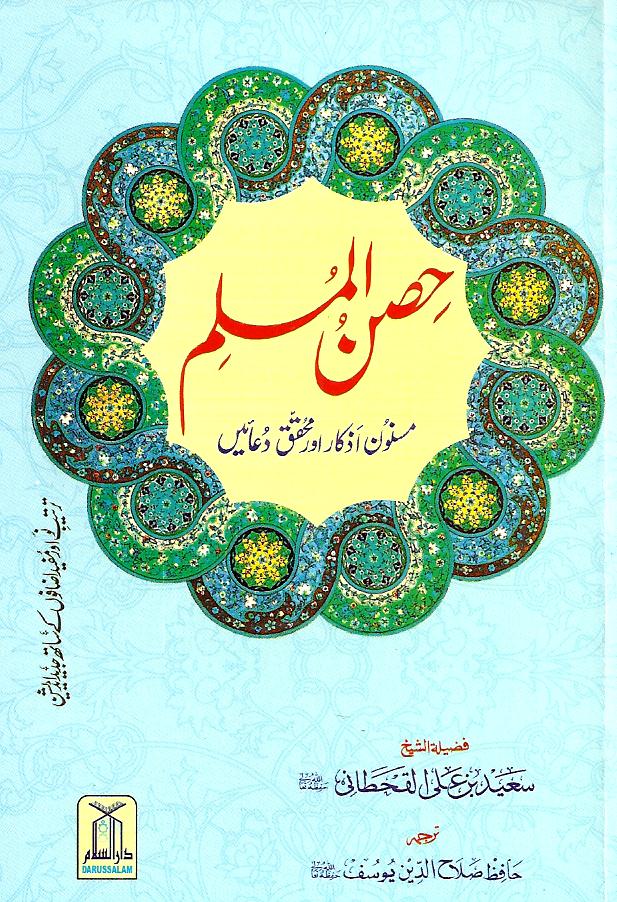 حِصنُ المُسلِم
مسنُون اَذکار اور محقَّق دُعائیں
ترتیبِ نَو اور مفید اضافوں کے ساتھ جدید ایڈیشن
فضیلة الشیخ
سَعید بن عَلی القحطانی حفظہ اللہ تعالیٰ
ترجمہ
حَافِظ صَلاحُ الدّین یُوسُف حفظہ اللہ تعالیٰ
دار السلام
DARUSSALAM